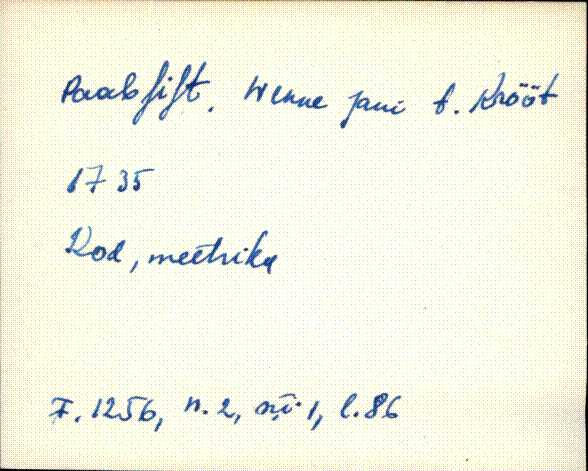 Paabsift, Wenne Jani t. Krööt
1735
Kod, meetrika
F. 1256, n. 2, sü. 1, l. 86